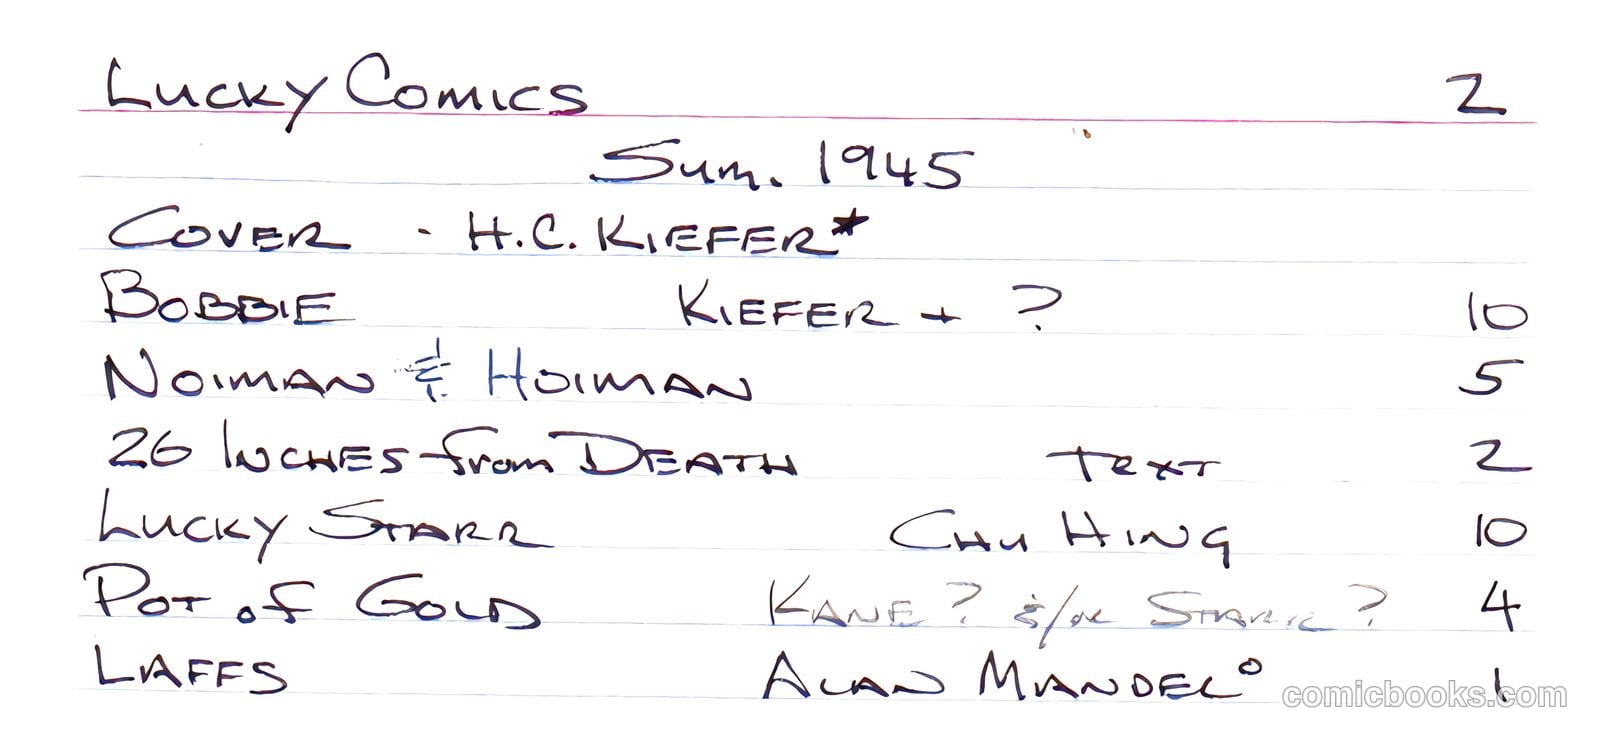 Lucky Comics 2
Sum. 1945
Cover - H.C. Kiefer*
Bobbie Kiefer + ? 10
Noiman & Hoiman 5
26 Inches from Death Text 2
Lucky Starr Chu Hing 10
Pot of Gold Kane? &/or Starr? 4
Laffs Alan Mandel° 1
comicbooks.com